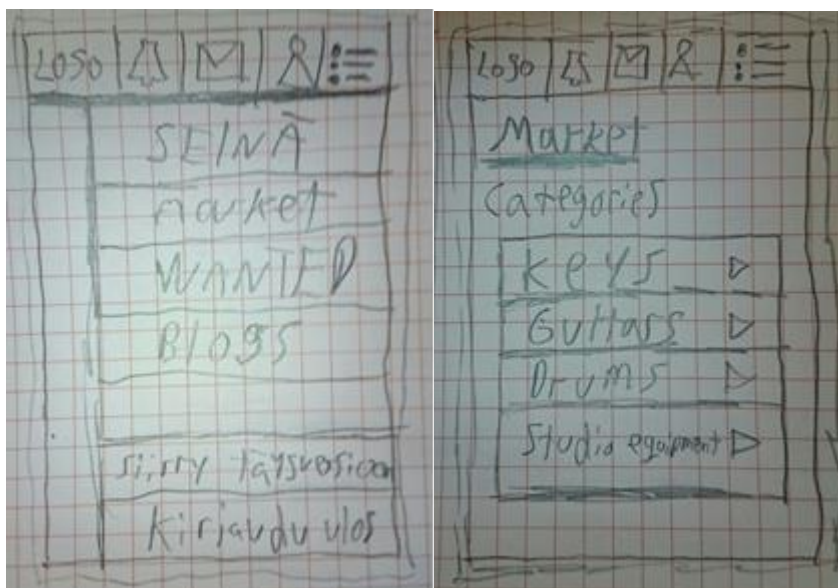 LOGO
SEINÄ
market
WANTED
Blogs
siirry täysversioon
Kirjaudu ulos
Logo
Market
Categories
Keys
Guitars
Drums
Studio equipment